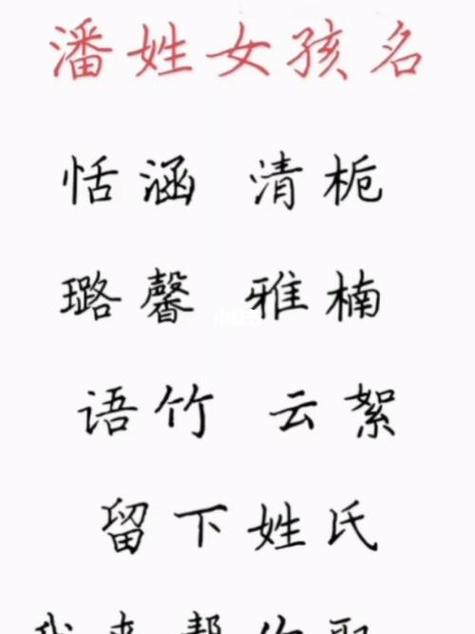 潘姓女孩名
恬涵 清栀
璐馨 雅楠
语竹 云絮
留下姓氏
我来帮你取